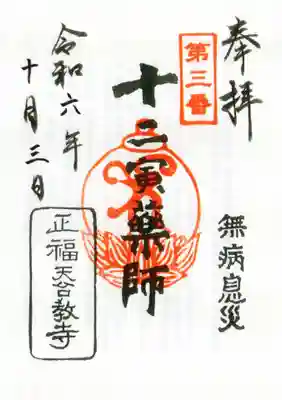 奉拝
無病息災
第三番
十二寅藥師
令和六年
十月三日
正福天台教寺